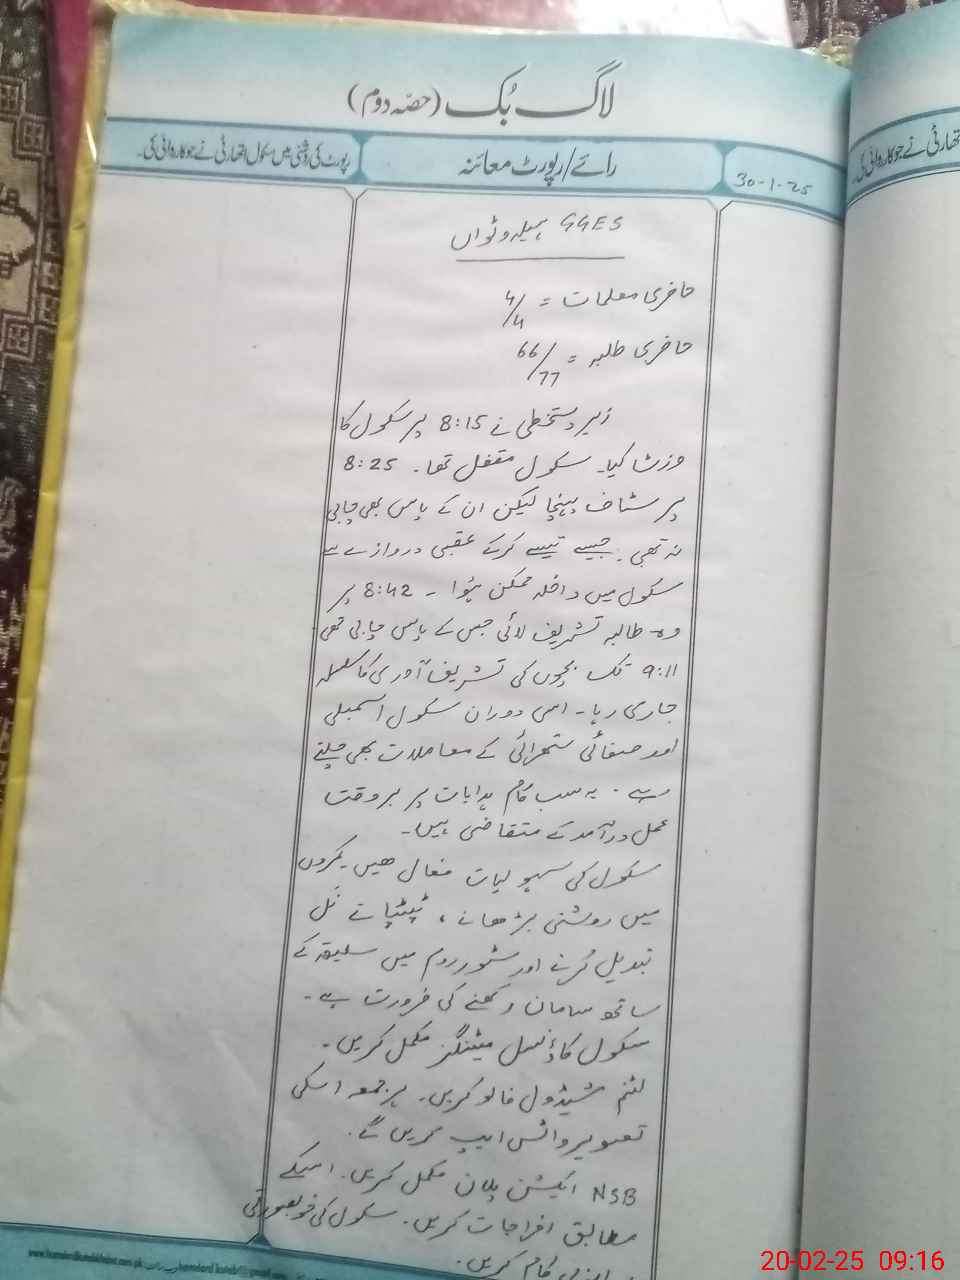 لاگ بُک (حصّہ دوم)
رائے/رپورٹ معائنہ
رپورٹ کی روشنی میں سکول اتھارٹی نے جو کاروائی کی۔
30-1-25
تھارٹی نے جو کاروائی کی۔
GGES
حاضری معلمات = 4/4
حاضری طلبہ = 66/77
زیر دستخطی نے 8:15 پر سکول کا
وزٹ کیا۔ سکول مقفل تھا۔ 8:25
پر سٹاف پہنچا لیکن ان کے پاس بھی چابی
نہ تھی۔ جیسے تیسے کرکے عقبی دروازے سے
سکول میں داخلہ ممکن ہوا۔ 8:42 پر
وہ طالبہ تشریف لائی جس کے پاس چابی تھی
9:11 تک بچوں کی تشریف آوری کا سلسلہ
جاری رہا۔ اسی دوران سکول اسمبلی
اور صفائی ستھرائی کے معاملات بھی چلتے
رہے۔ یہ سب کام ہدایات پر بروقت
عمل درآمد کے متقاضی ہیں۔
سکول کی سہولیات فعال ھیں۔ کمروں
میں روشنی بڑھانے، ٹپٹپاتے نَل
تبدیل کرنے اور سٹور روم میں سلیقہ کے
ساتھ سامان رکھنے کی ضرورت ہے۔
سکول کاؤنسل میٹنگز مکمل کریں۔
شیڈول فالو کریں۔ ہر جمعہ اسکی
تصویر واٹس ایپ کریں گے۔
NSB ایکشن پلان مکمل کریں۔ اسکے
مطابق اخراجات کریں۔ سکول کی خوبصورتی
کام کریں۔
www.hamdardkutabkhana.com.pk
20-02-25 09:16